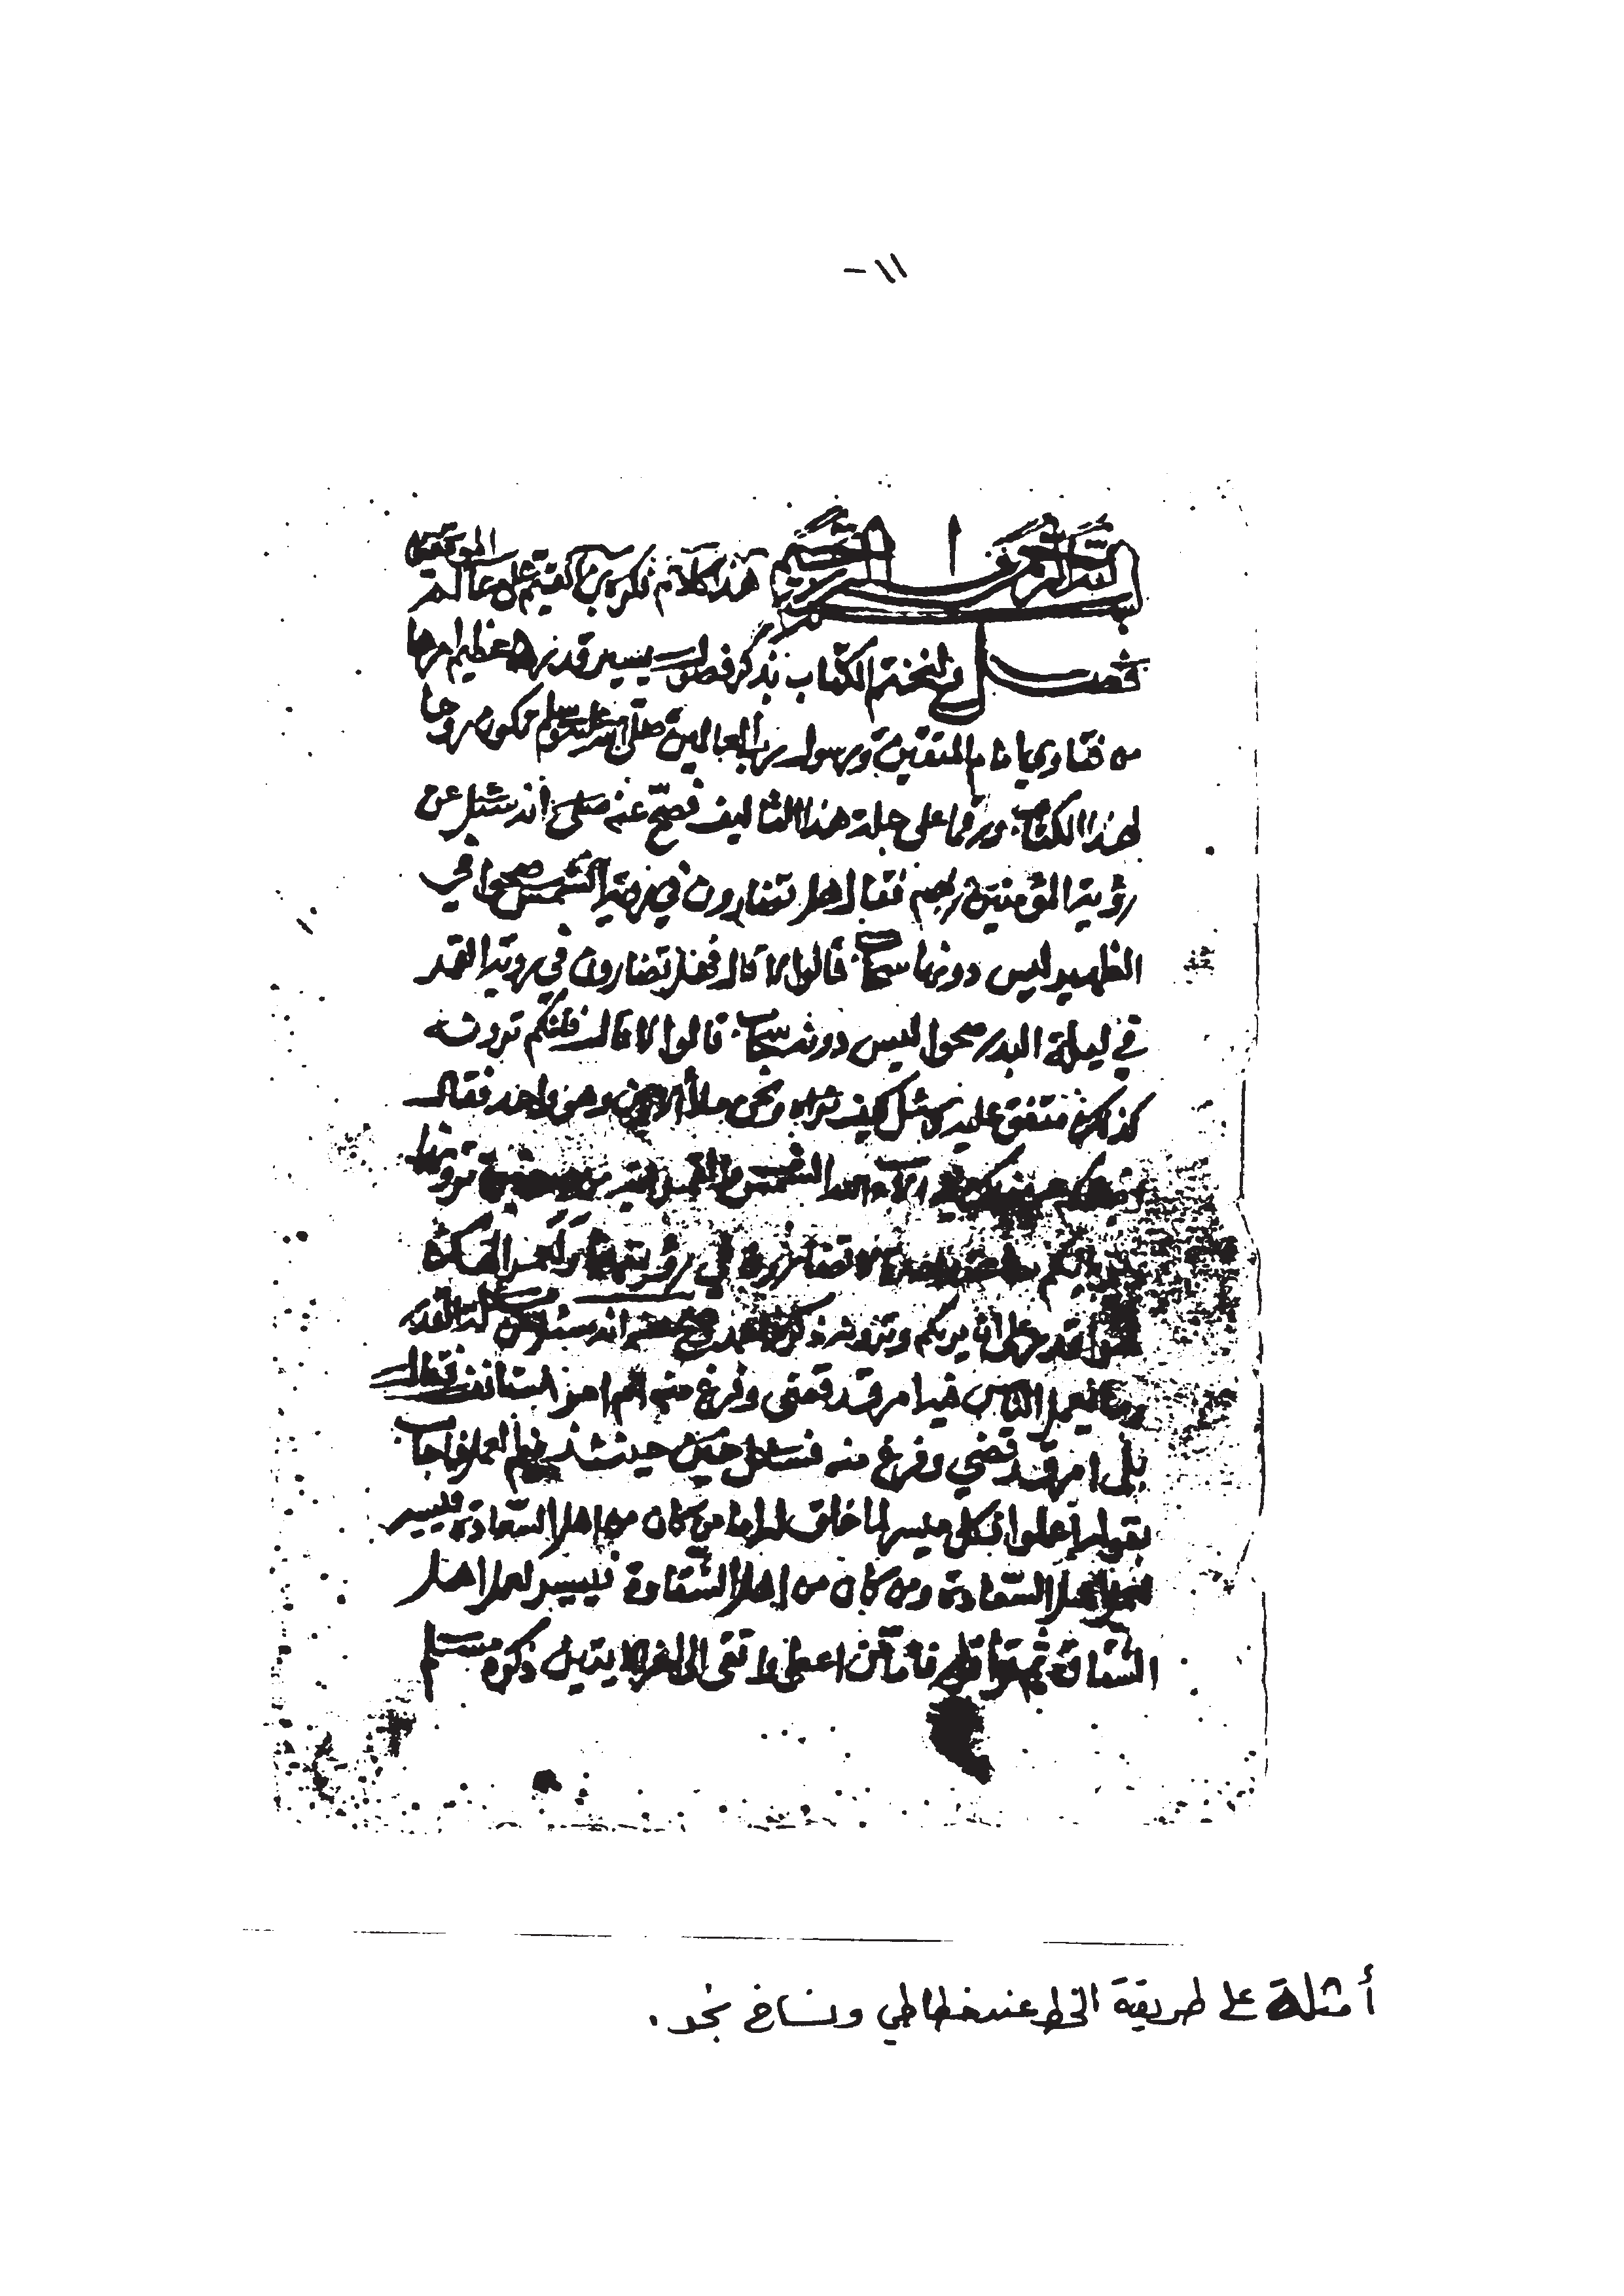 ١١ -
بسم الله الرحمن الرحيم هذا كلام ذكره بن القيم على خاتمة الموقعين
فصل ولنختم الكتاب بذكر فصول يسير قدرها عظيم امرها
من فتاوي امام المتقين ورسول رب العالمين صلى الله عليه وسلم تكون روحا
لهذا الكتاب ورقما على جلة هذا التاليف فصح عنه صلى انه سئل عن
رؤية المؤمنين ربهم فقال هل تضارون في رؤية الشمس صحوا في
الظهيره ليس دونها سحاب قالوا لا قال فهل تضارون في روية القمر
في ليلة البدر صحوا ليس دونه سحاب قالوا لا قال فانكم ترونه
كذلك متفق عليه وسئل كيف نراه ونحن ملأ الارض وهو واحد فقال
الشمس والقمر ترونها
لا تضارون في رؤيتهما ولعمر الهك
اقدر على ان يريكم وترونه ذكره احمد وصح عنه انه سئل عن القدر
وما يعمل الناس فيه امر قد قضي وفرغ منه ام امر مستانف فقال
بل امر قد قضي وفرغ منه فسئل حينئذ ففيم العمل فاجاب
بقوله اعملوا فكل ميسر لما خلق له اما من كان من اهل السعادة فييسر
لعمل اهل السعادة ومن كان من اهل الشقاوة فييسر لعمل اهل
الشقاوة ثم قرا قوله فاما من اعطى واتقى الى اخر الايتين ذكره مسلم
أمثلة على طريقة الخط عند خطاطي ونساخ نجد .